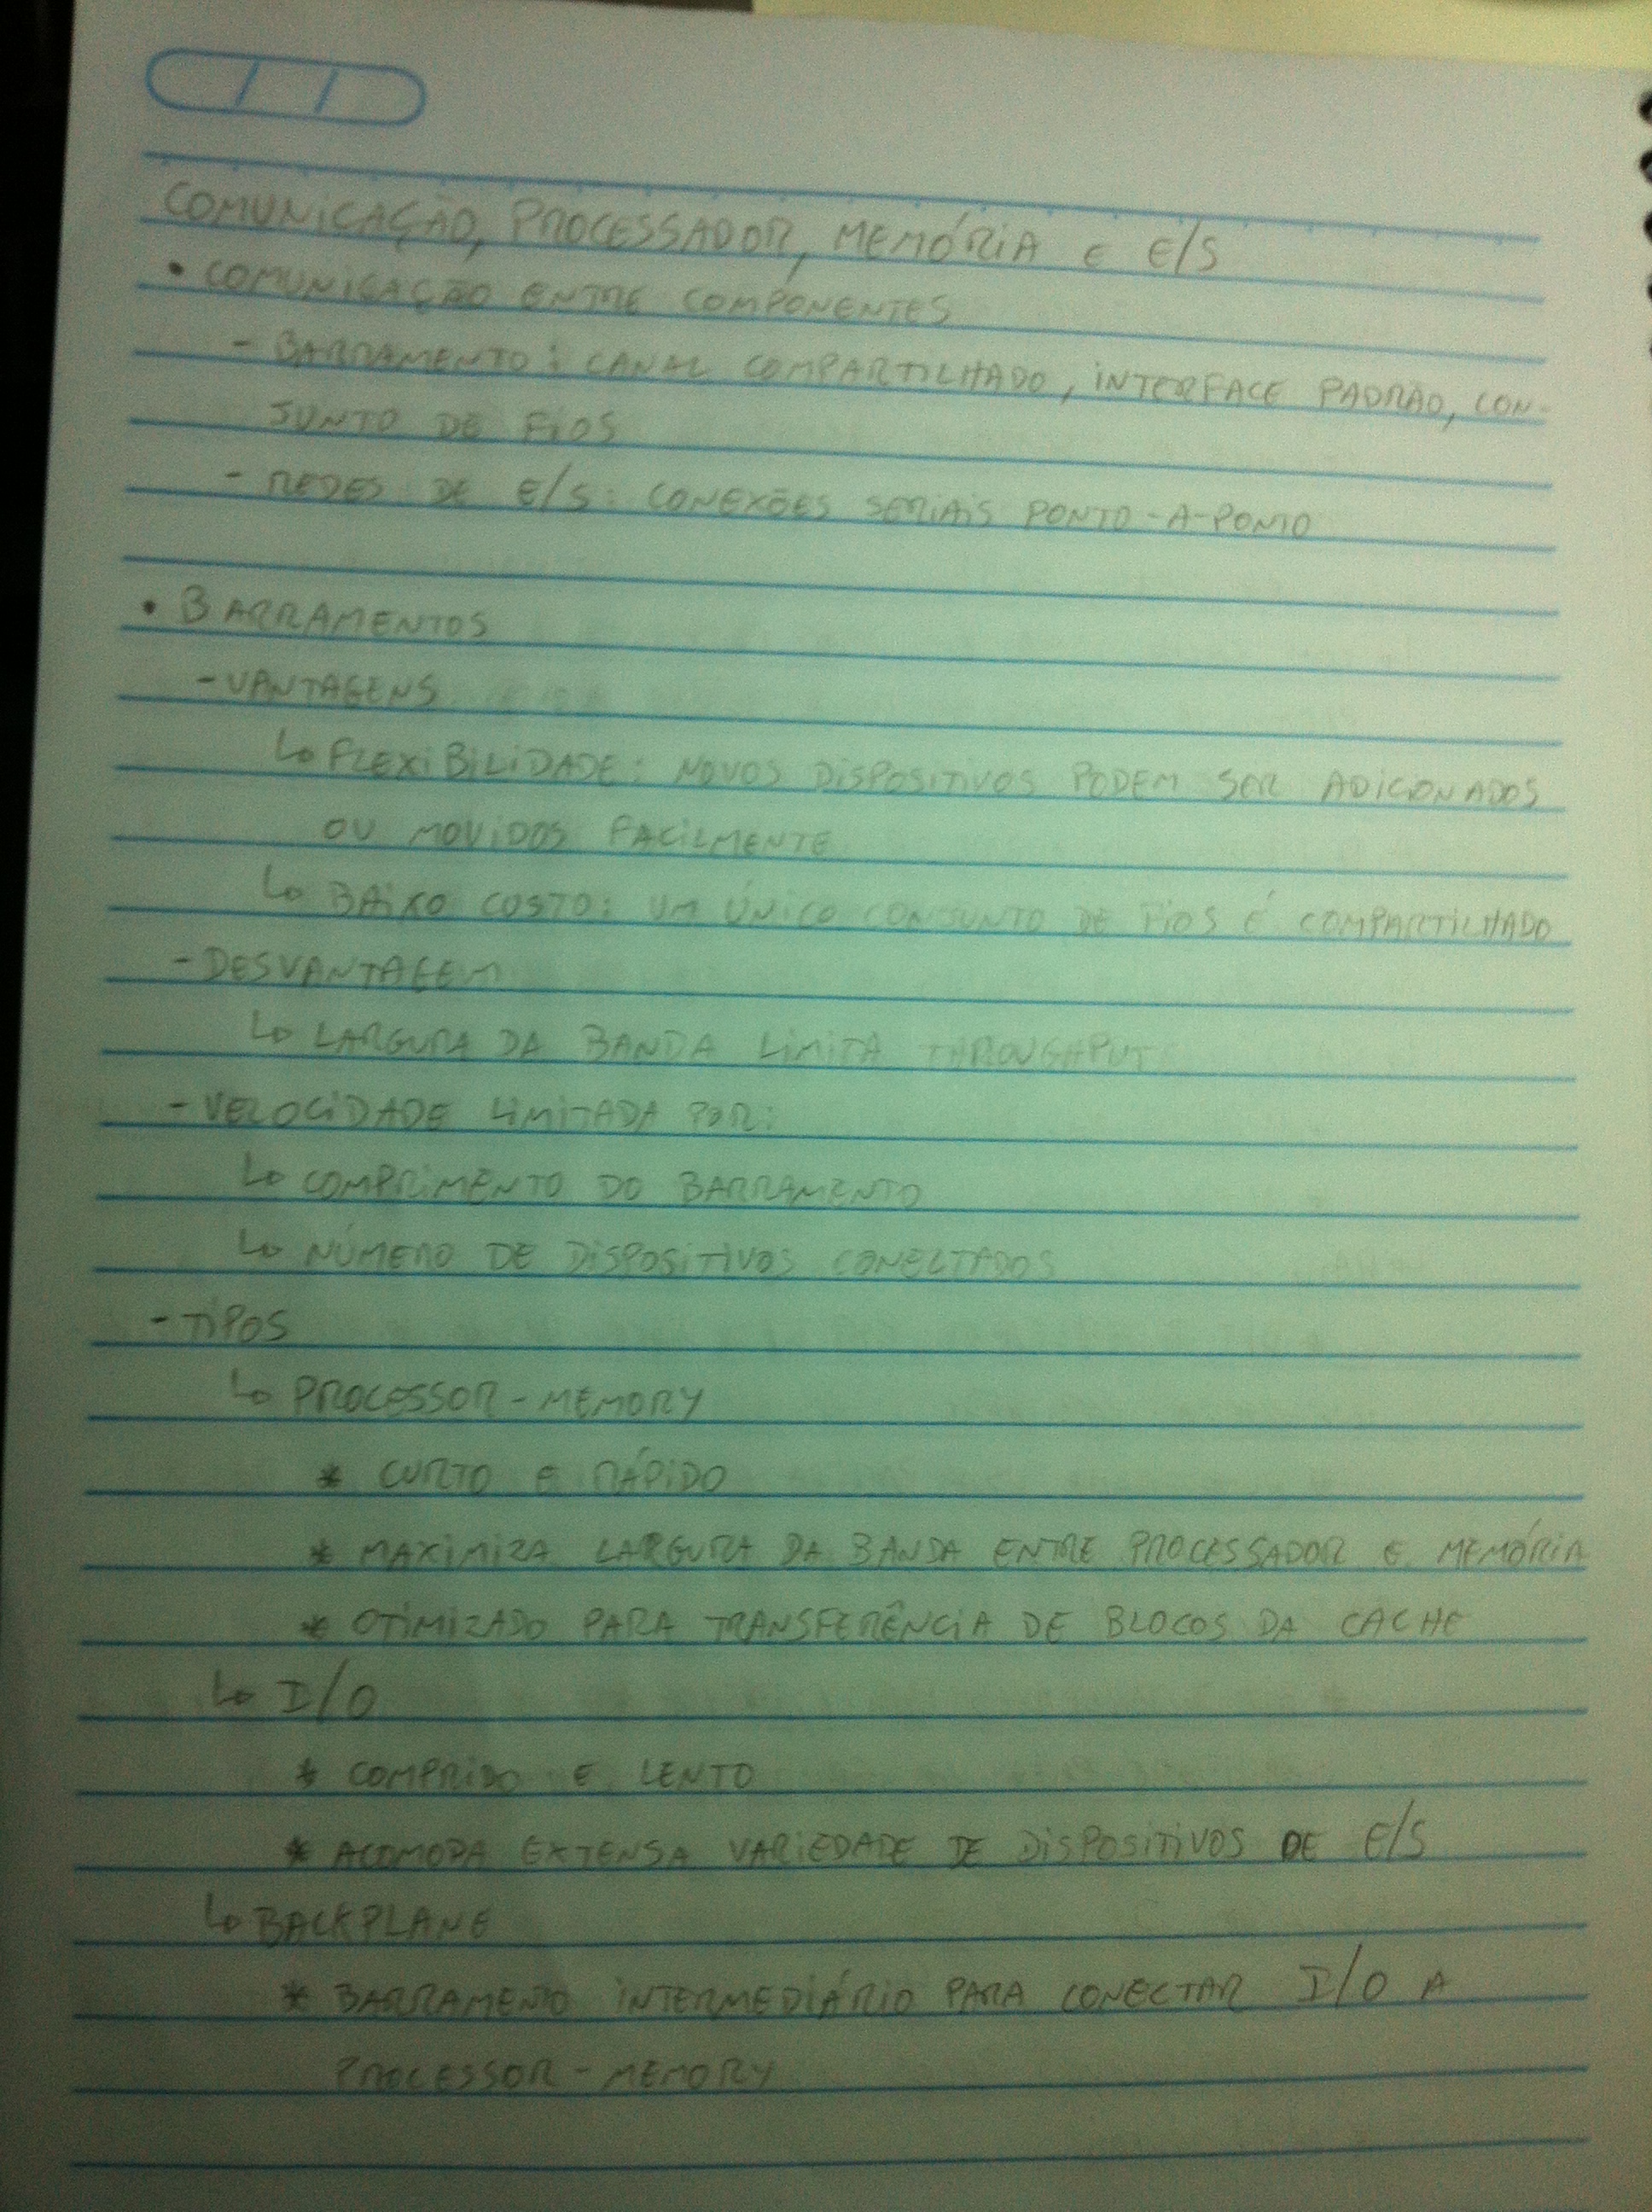 COMUNICAÇÃO, PROCESSADOR, MEMÓRIA E E/S
• COMUNICAÇÃO ENTRE COMPONENTES
- BARRAMENTO: CANAL COMPARTILHADO, INTERFACE PADRÃO, CON-
JUNTO DE FIOS
- REDES DE E/S: CONEXÕES SERIAIS PONTO-A-PONTO
• BARRAMENTOS
- VANTAGENS
↳ FLEXIBILIDADE: NOVOS DISPOSITIVOS PODEM SER ADICIONADOS
OU MOVIDOS FACILMENTE
↳ BAIXO COSTO: UM ÚNICO CONJUNTO DE FIOS É COMPARTILHADO
- DESVANTAGEM
↳ LARGURA DA BANDA LIMITA THROUGHPUT
- VELOCIDADE LIMITADA POR:
↳ COMPRIMENTO DO BARRAMENTO
↳ NÚMERO DE DISPOSITIVOS CONECTADOS
- TIPOS
↳ PROCESSOR-MEMORY
* CURTO E RÁPIDO
* MAXIMIZA LARGURA DA BANDA ENTRE PROCESSADOR E MEMÓRIA
* OTIMIZADO PARA TRANSFERÊNCIA DE BLOCOS DA CACHE
↳ I/O
* COMPRIDO E LENTO
* ACOMODA EXTENSA VARIEDADE DE DISPOSITIVOS DE E/S
↳ BACKPLANE
* BARRAMENTO INTERMEDIÁRIO PARA CONECTAR I/O A
PROCESSOR-MEMORY